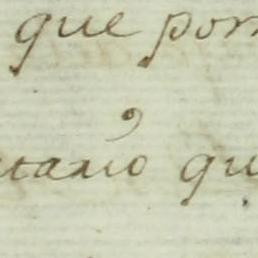 que por
tario qu